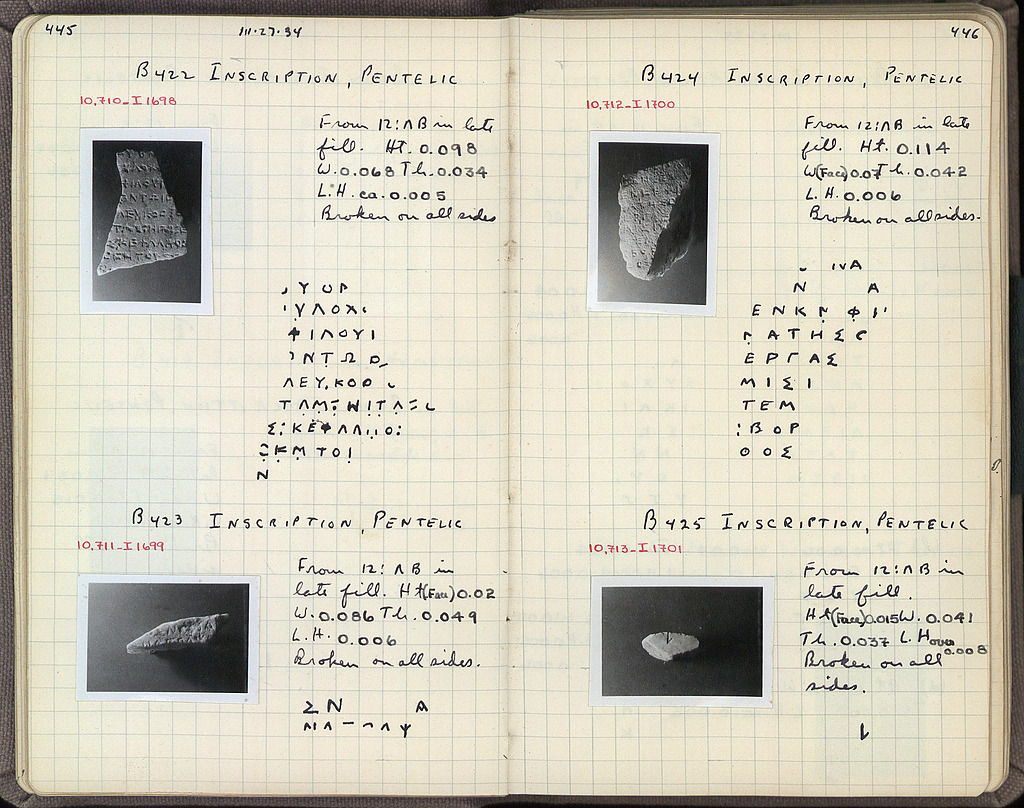 445
111·27·34
B422 INSCRIPTION, PENTELIC
10,710_I 1698
From 12:ΛB in late
fill. Ht. 0.098
W. 0.068 Th. 0.034
L.H. ca. 0.005
Broken on all sides
Υ Ο Ρ
Υ Λ Ο Χ
Φ Ι Λ Ο Υ Ι
Ν Τ Ω
Λ Ε Υ . Κ Ο Ο
Μ Τ Ο Ι
Ν
B423 INSCRIPTION, PENTELIC
10,711_I 1699
From 12:ΛB in
late fill. Ht(Face) 0.02
W. 0.086 Th. 0.049
L.H. 0.006
Broken on all sides.
Σ Ν Α
446
B424 INSCRIPTION, PENTELIC
10,712_I 1700
From 12:ΛB in late
fill. Ht. 0.114
W(Face) 0.07 Th. 0.042
L.H. 0.006
Broken on all sides.
Ν Α
Ε Ν Κ Φ Ι
Α Τ Η Σ
Ε Ρ Γ Α Σ
Μ Ι Σ Ι
Τ Ε Μ
Β Ο Ρ
Ο Ο Σ
B425 INSCRIPTION, PENTELIC
10,713_I 1701
From 12:ΛB in
late fill.
Ht(Face) 0.015 W. 0.041
Th. 0.037 L.H. over 0.008
Broken on all
sides.